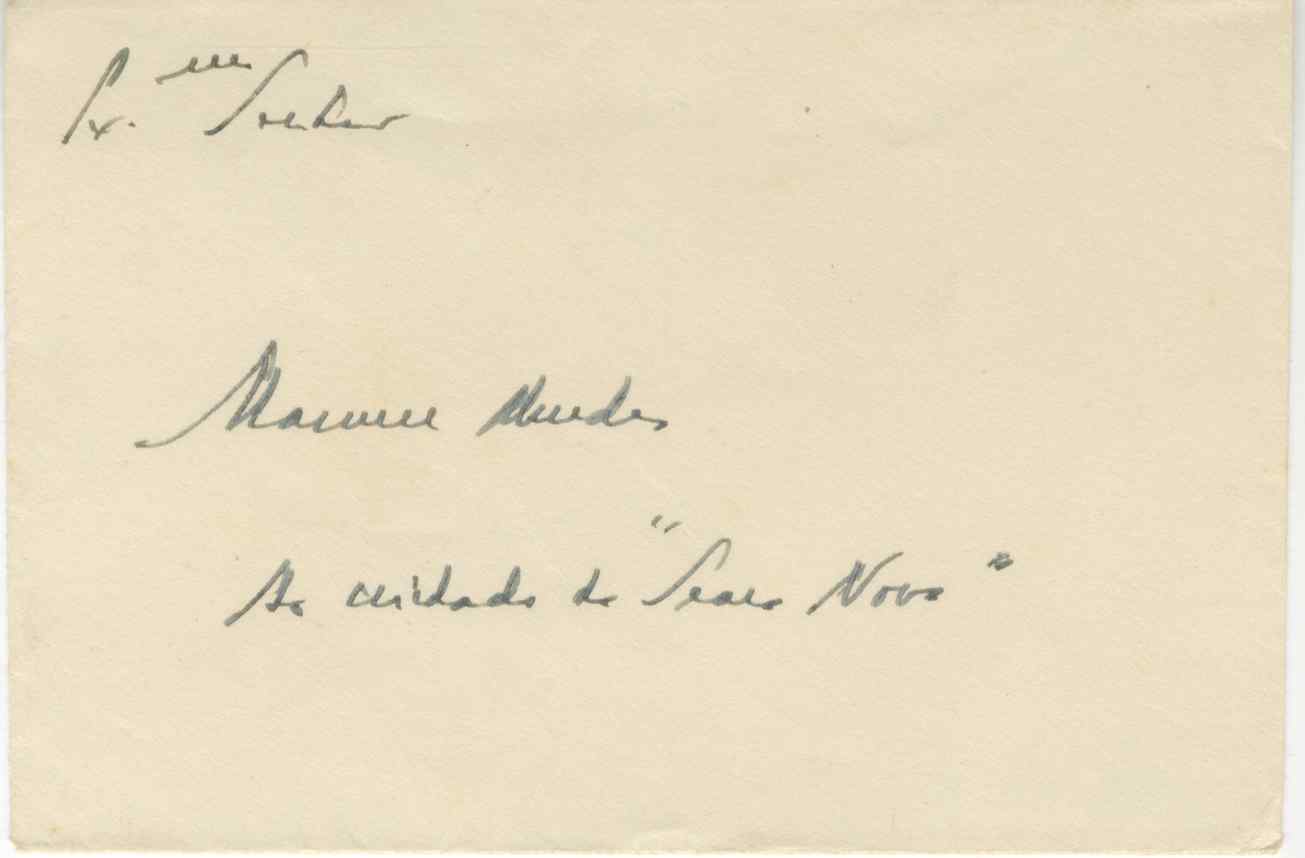 Ex.mo Senhor
Manuel Mendes
Ao cuidado da "Seara Nova"